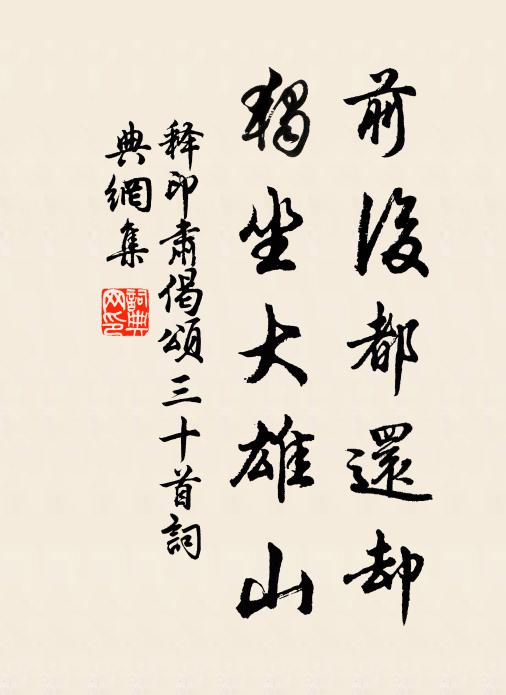 前後都還却
獨坐大雄山
释印肅偈頌三十首詞
典網集
詞典
网印